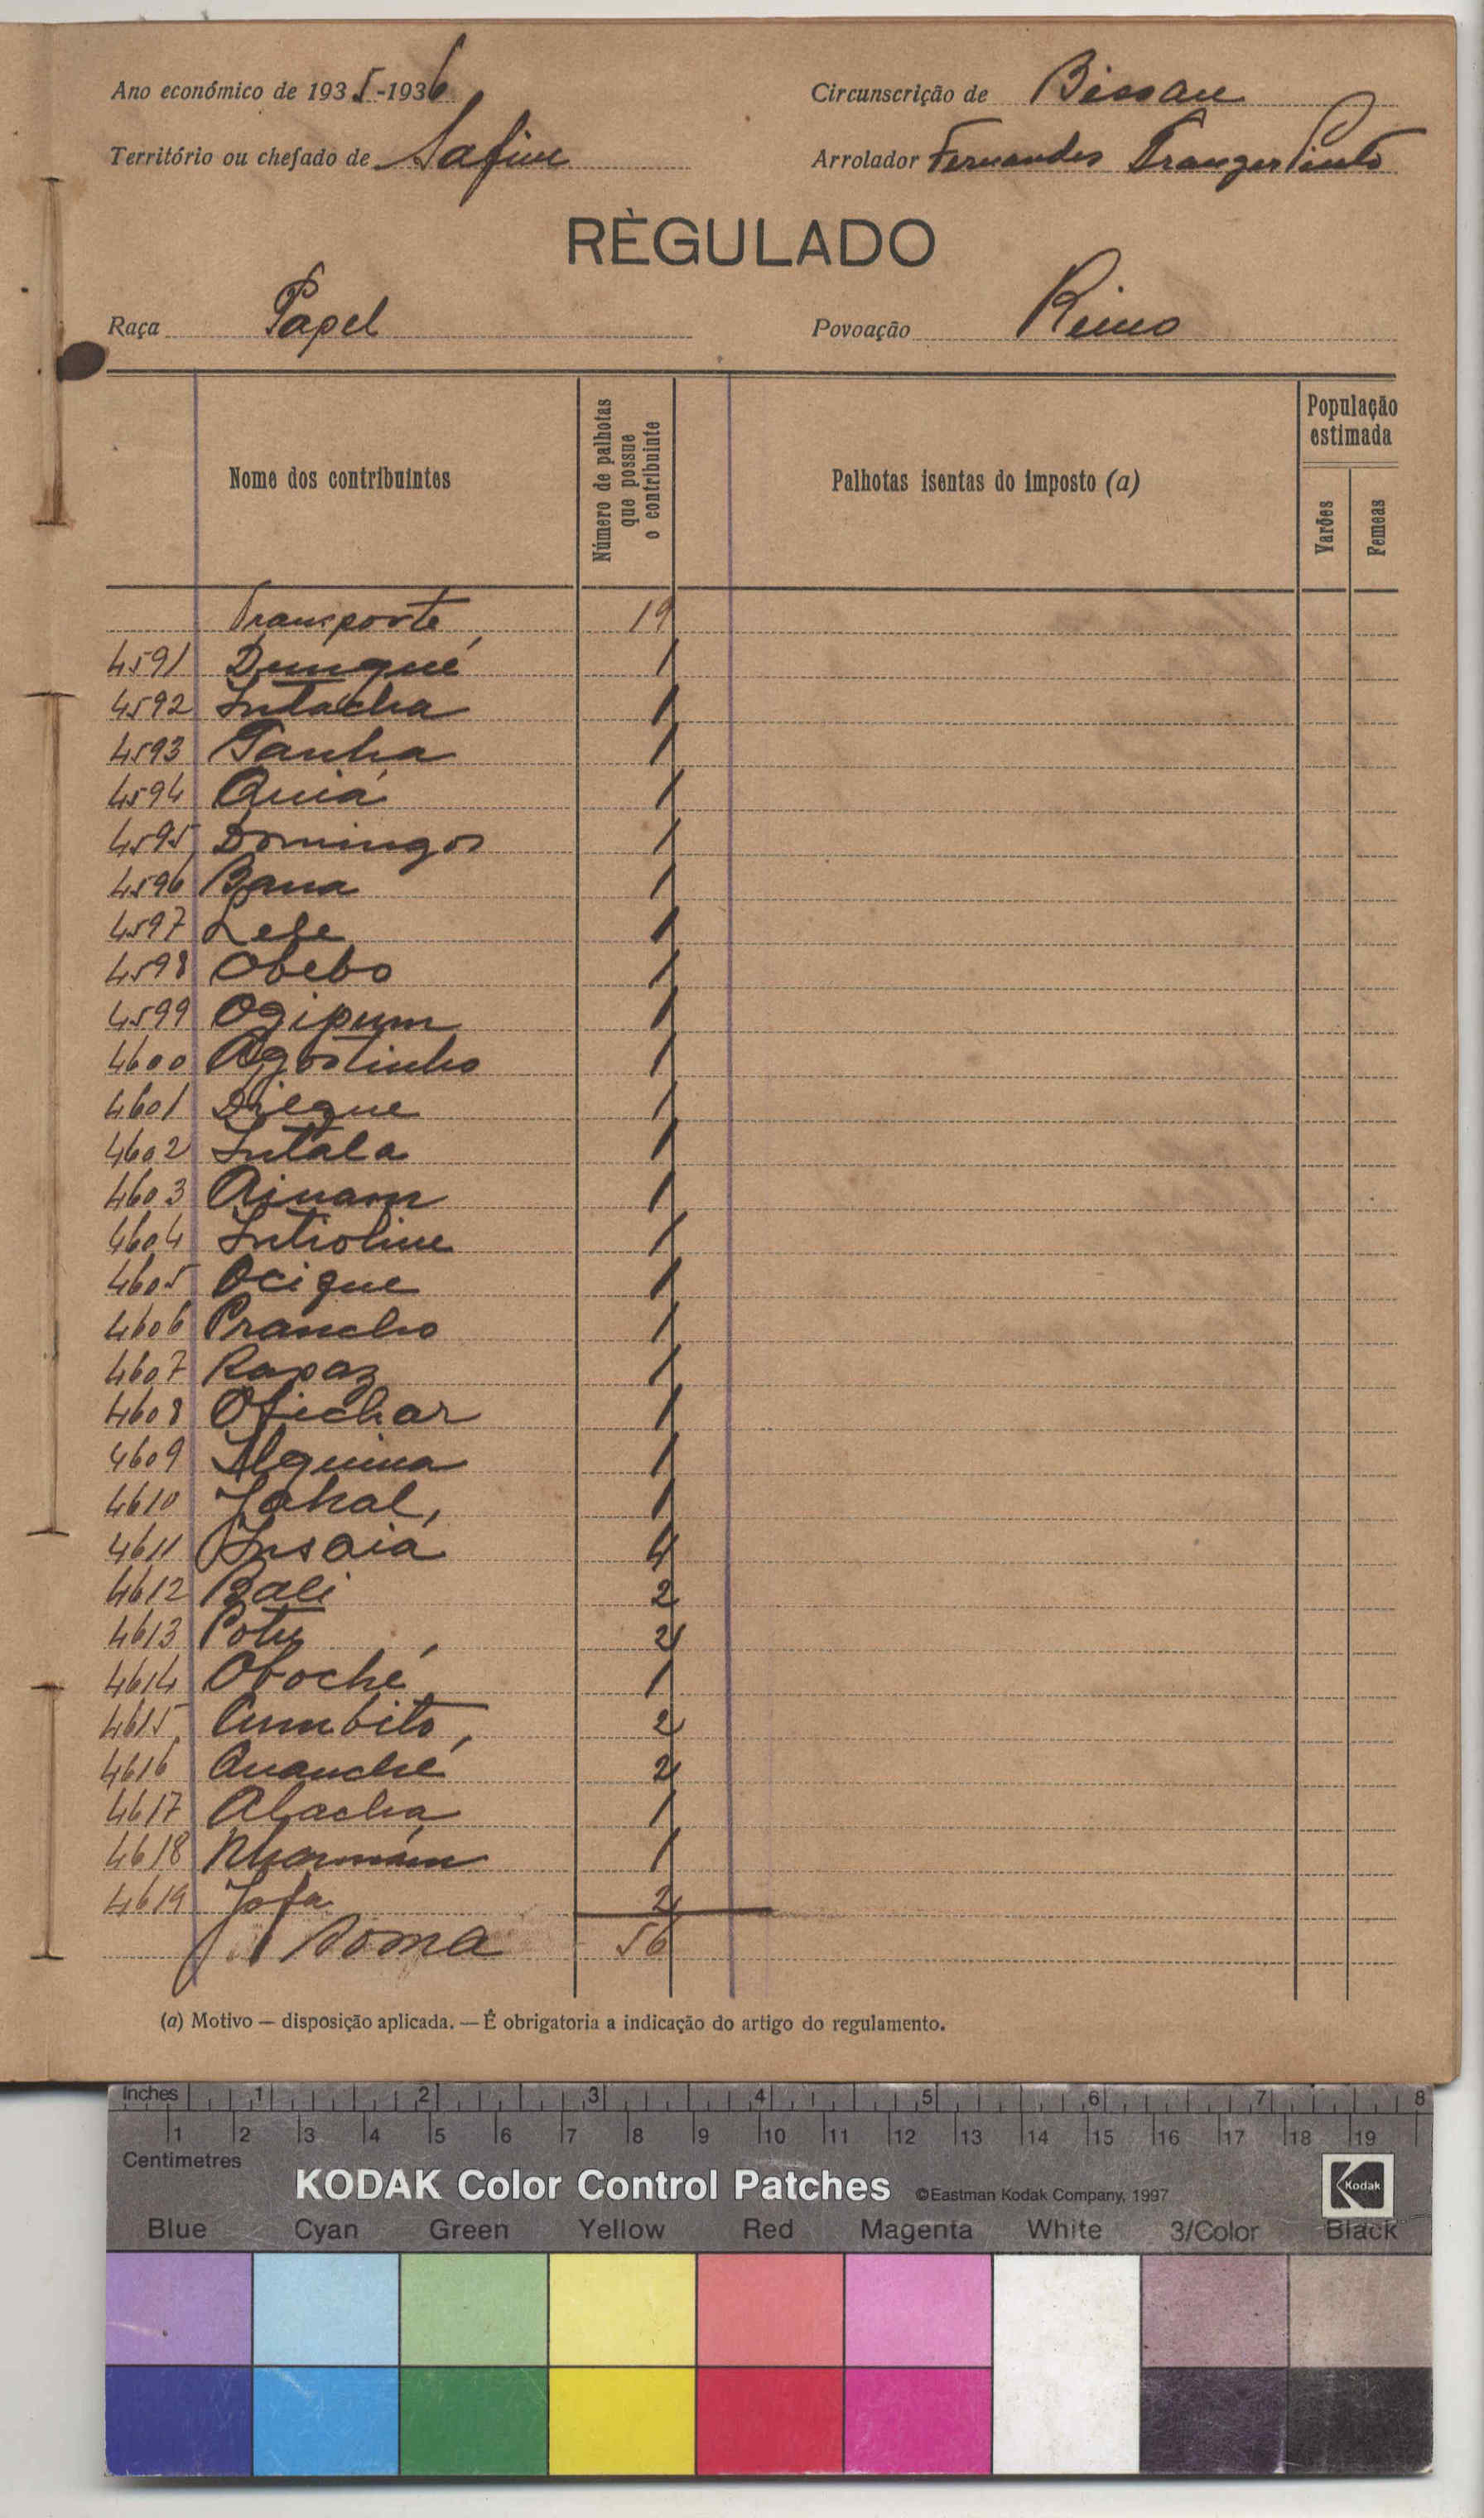 Ano económico de 1935-1936
Circunscrição de Bissau
Território ou chefado de Safim
Arrolador Fernandes Pinto
RÈGULADO
Raça Papel
Povoação Reino
Nome dos contribuintes
Número de palhotas que possue o contribuinte
Palhotas isentas do imposto (a)
População estimada
Varões
Femeas
Transporte 19
4591 Dunqué 1
4592 Intacha 1
4593 Tanha 1
4594 Quiá 1
4595 Domingos 1
4596 Bana 1
4597 Lele 1
4598 Obebo 1
4599 Ogipum 1
4600 Agostinho 1
4601 1
4602 Intala 1
4603 Ainam 1
4604 Intioline 1
4605 Ocique 1
4606 Prancho 1
4607 Rapaz 1
4608 Ofichar 1
4609 1
4610 Jahal 1
4611 Insaiá 4
4612 Bali 2
4613 2
4614 Oboché 1
4615 Cumbito 2
4616 Quanché 2
4617 Abacha 1
4618 1
4619 Jofa 2
Soma 56
(a) Motivo — disposição aplicada. — É obrigatoria a indicação do artigo do regulamento.
Inches 1 2 3 4 5 6 7 8
1 2 3 4 5 6 7 8 9 10 11 12 13 14 15 16 17 18 19
Centimetres
KODAK Color Control Patches ©Eastman Kodak Company, 1997 Kodak
Blue Cyan Green Yellow Red Magenta White 3/Color Black